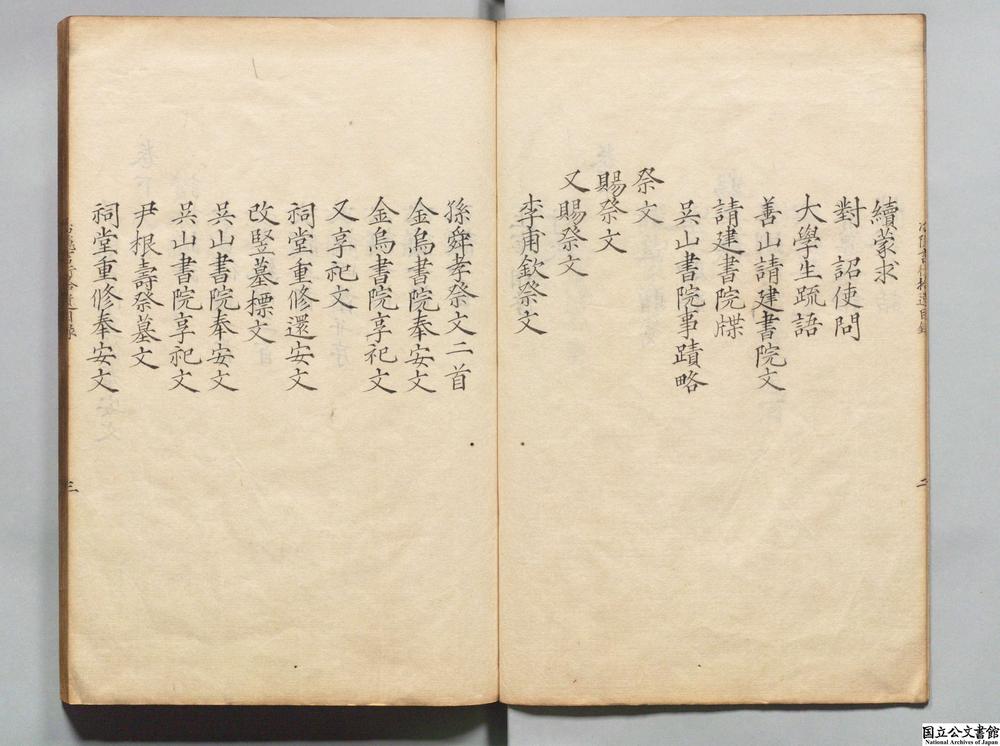 續蒙求
對 詔使問
大學生疏語
善山請建書院文
請建書院牒
吳山書院事蹟略
祭文
賜祭文
又賜祭文
李甫欽祭文
二
孫舜孝祭文二首
金烏書院奉安文
金烏書院享祀文
又享祀文
祠堂重修還安文
改竪墓標文
吳山書院奉安文
吳山書院享祀文
尹根壽祭墓文
祠堂重修奉安文
三
国立公文書館
National Archives of Japan